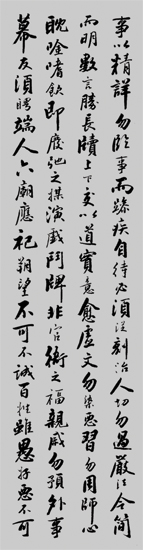 事以精詳勿臨事而躁疾自待必須從刻治人切勿過嚴法令簡
而明數言勝長牘上下交以道實意愈虛文勿染惡習勿用師心
耽唫嗜飲即廢弛之媒演戲鬥牌非官衙之福親戚勿預外事
幕友須聘端人六廟應祀朔望不可不誠百姓雖愚好惡不可